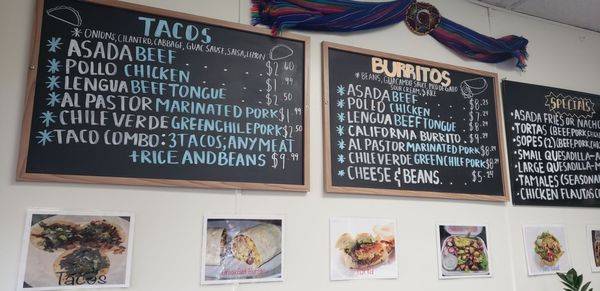 TACOS
* ONIONS, CILANTRO, CABBAGE, GUAC SAUSE, SALSA, LEMON
* ASADA BEEF . . . $2.40
* POLLO CHICKEN . . . $1.99
* LENGUA BEEF TONGUE . . $2.50
* AL PASTOR MARINATED PORK $1.99
* CHILE VERDE GREEN CHILE PORK $2.50
* TACO COMBO: 3 TACOS; ANY MEAT
+ RICE AND BEANS $9.99
BURRITOS
* BEANS, GUACAMOLE SAUCE, PICO DE GALLO
SOUR CREAM & RICE
* ASADA BEEF . . . $8.25
* POLLO CHICKEN . . $7.
* LENGUA BEEF TONGUE . $8.
* CALIFORNIA BURRITO . $9.
* AL PASTOR MARINATED PORK $8.
* CHILE VERDE GREEN CHILE PORK $8.
* CHEESE & BEANS . . . $5.
SPECIALS
* ASADA FRIES OR NACHO
* TORTAS (BEEF, PORK
* SOPES (2) (BEEF, PORK
* SMALL QUESADILLA-A
* LARGE QUESADILLA-M
* TAMALES (SEASONA
* CHICKEN FLAUTAS
Tacos
Breakfast Burrito